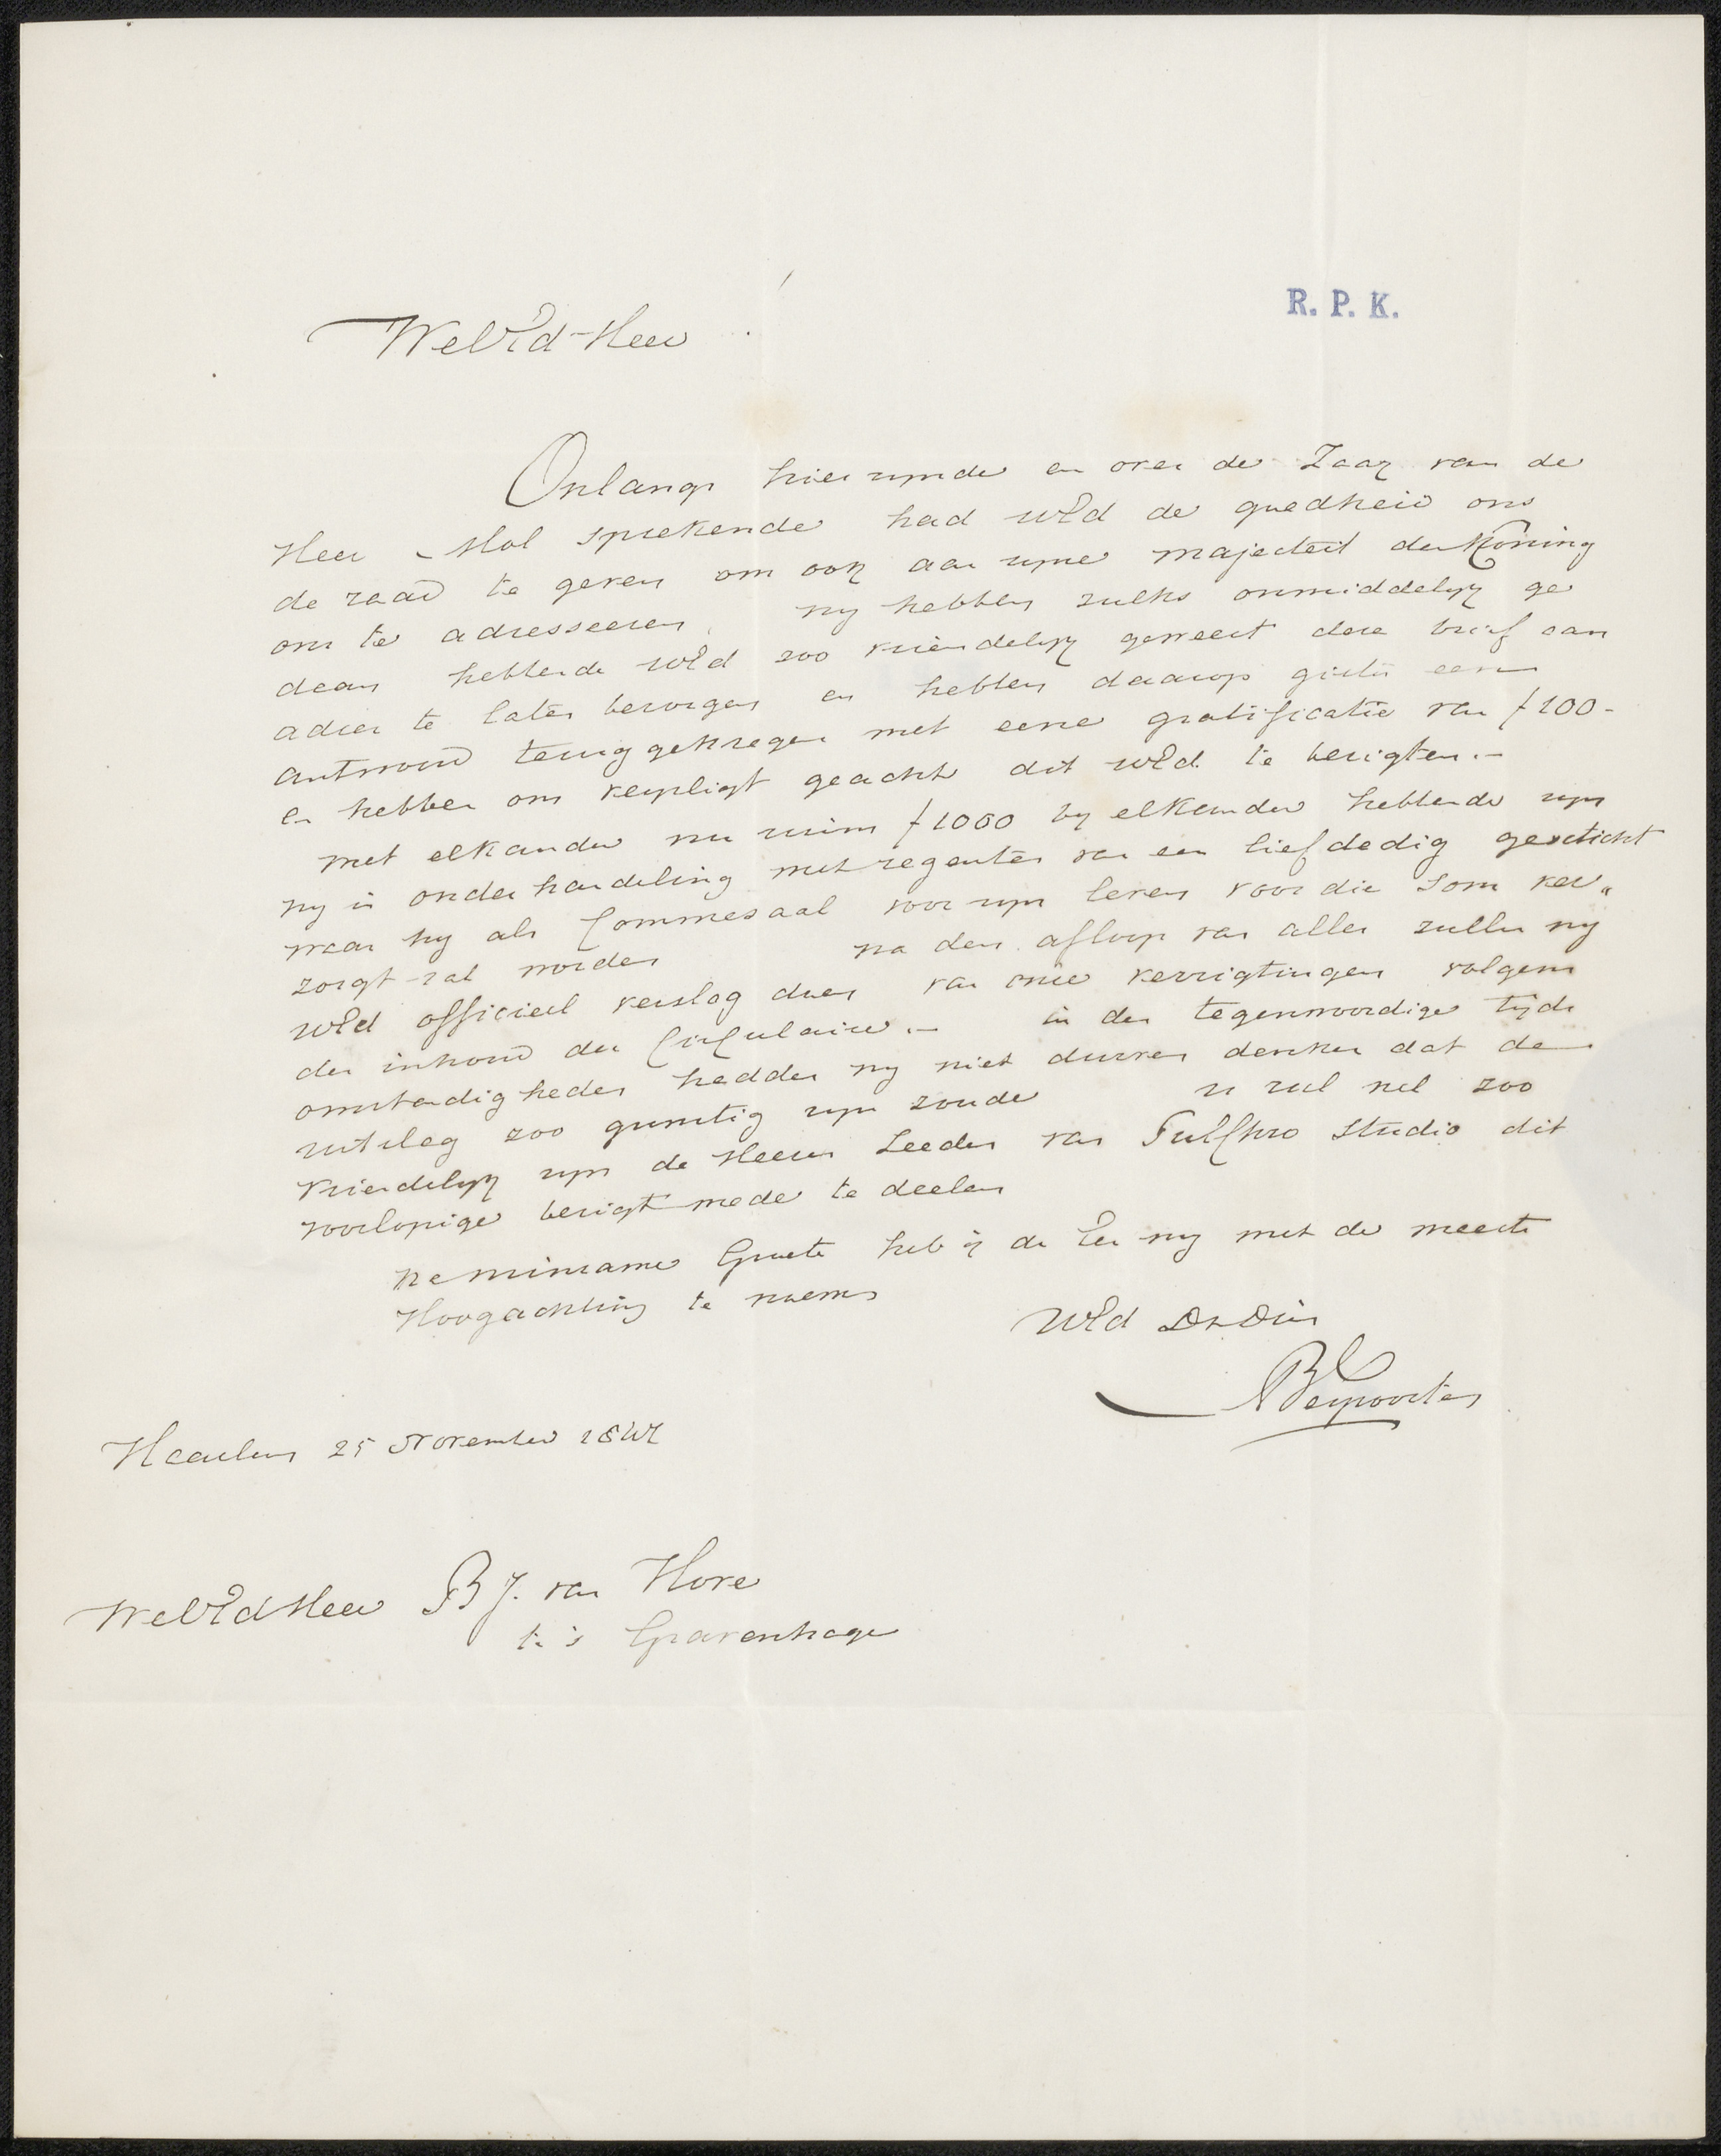 R. P. K.
WelEd Heer
Onlangs hier zynde en over de Zaak van de
Heer Mol sprekende had UEd de goedheid ons
de raad te geven om ook aan zyne majesteit den Koning
ons te adresseeren wy hebben zulks onmiddelyk ge
daan hebbende UEd zoo vriendelyk geweest deze brief aan
adres te laten bezorgen en hebben daarop gister een
antwoord teruggekregen met eene gratificatie van f 100-
en hebben ons verpligt geacht dit UEd te berigten.-
met elkander nu ruim f 1000 by elkander hebbende zyn
wy in onderhandeling met regenten van een liefdedig gesticht
waar hy als Commesaal voor zyn leven voor die som ver„
zorgt zal worden na den afloop van alles zullen wy
UEd officieel verslag doen van onze verrigtingen volgens
den inhoud der Circulaire.- in den tegenwoordige tyds
omstandigheden hadden wy niet durven denken dat den
uitslag zoo gunstig zyn zoude u zul wel zoo
vriendelyk zyn de Heeren Leeden van Pulchro Studio dit
voorlopige berigt mede te deelen
na minzame Groete heb ik de Eer my met de meeste
Hoogachting te noemen
UEd DwDien
Haarlem 25 November
WelEdHeer B J. van Hove
te 's Gravenhage